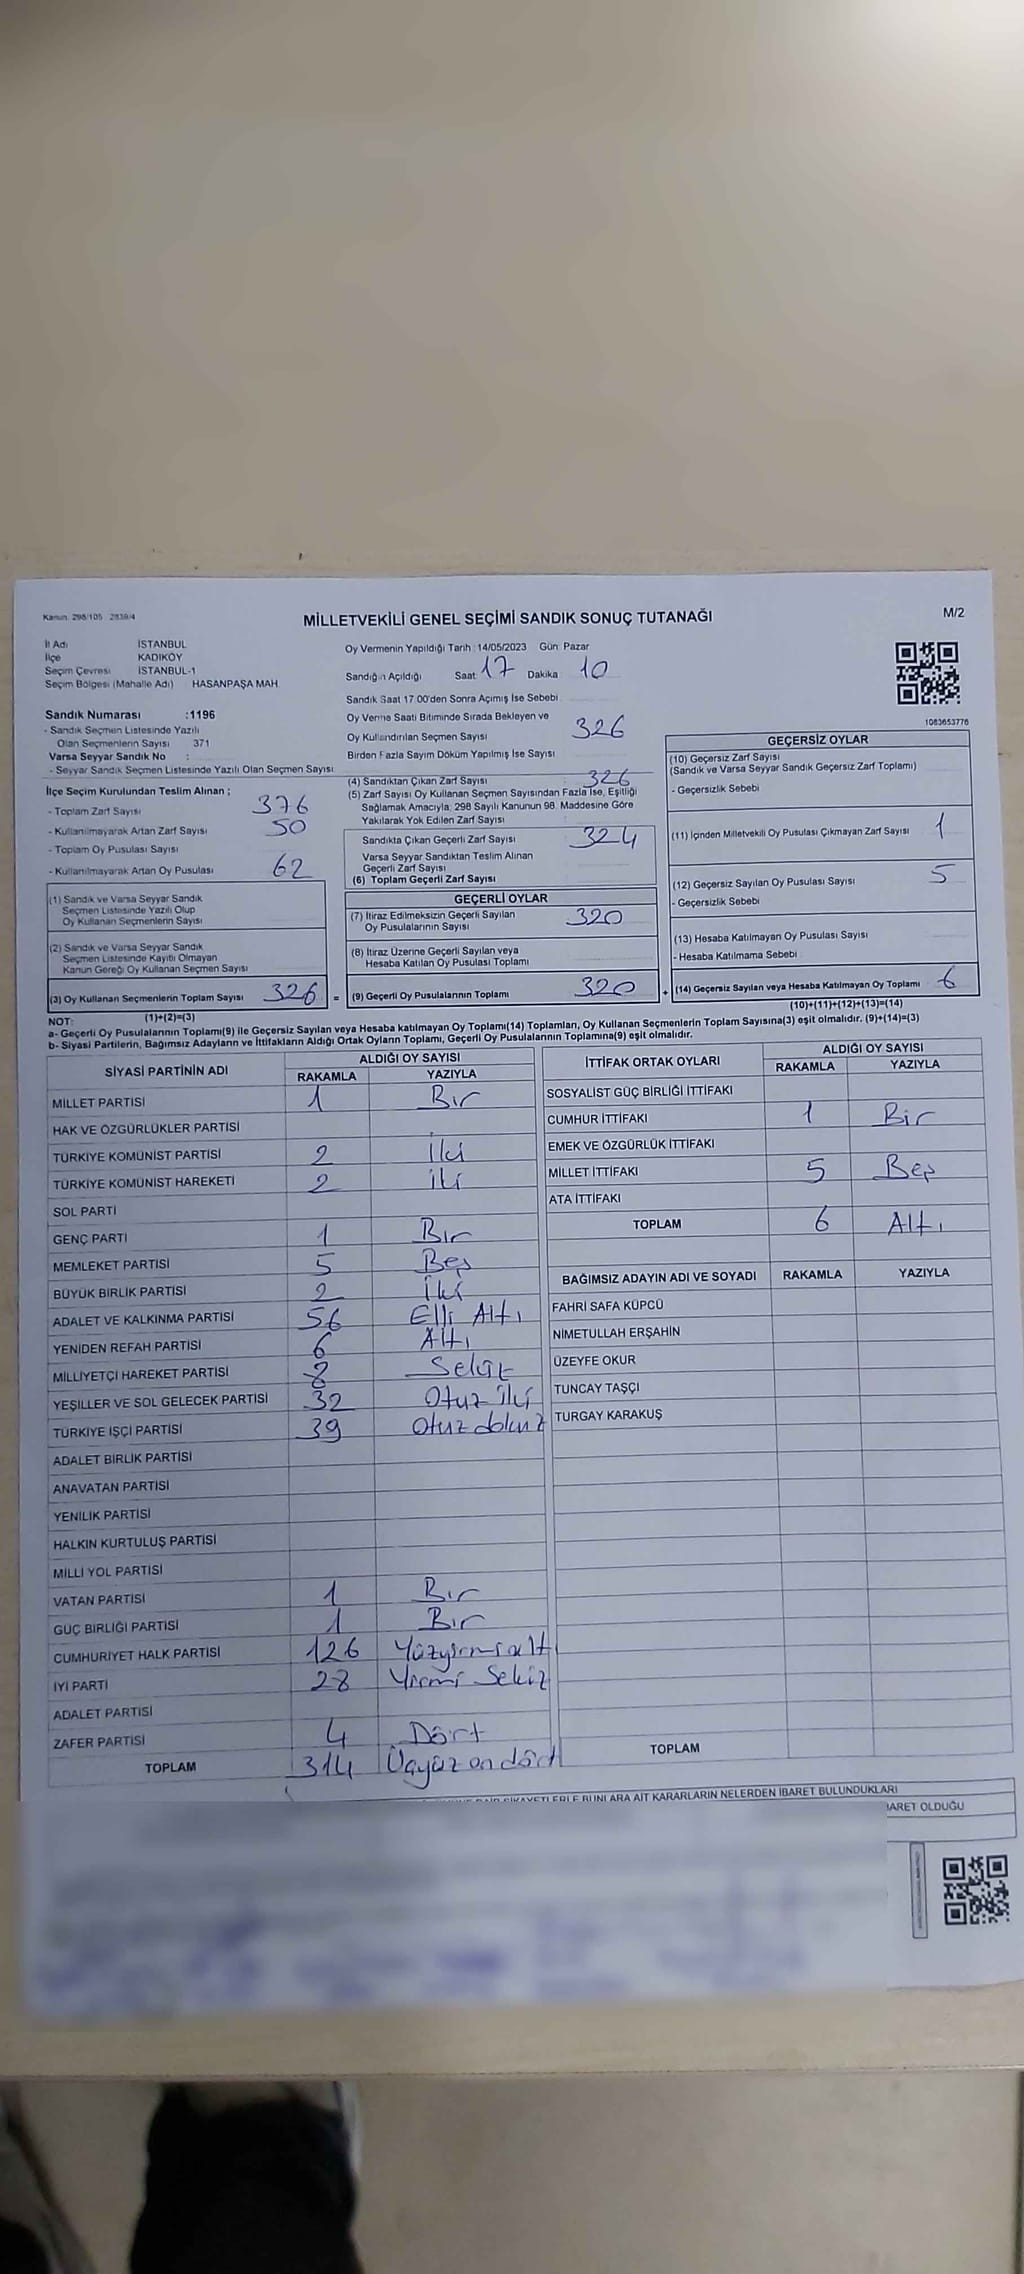 Kanun: 298/105 2839/4
MİLLETVEKİLİ GENEL SEÇİMİ SANDIK SONUÇ TUTANAĞI
M/2
İl Adı İSTANBUL
İlçe KADIKÖY
Seçim Çevresi İSTANBUL-1
Seçim Bölgesi (Mahalle Adı) HASANPAŞA MAH
Sandık Numarası :1196
- Sandık Seçmen Listesinde Yazılı
Olan Seçmenlerin Sayısı 371
Varsa Seyyar Sandık No :
- Seyyar Sandık Seçmen Listesinde Yazılı Olan Seçmen Sayısı
İlçe Seçim Kurulundan Teslim Alınan ;
- Toplam Zarf Sayısı 376
- Kullanılmayarak Artan Zarf Sayısı 50
- Toplam Oy Pusulası Sayısı
- Kullanılmayarak Artan Oy Pusulası 62
(1) Sandık ve Varsa Seyyar Sandık
Seçmen Listesinde Yazılı Olup
Oy Kullanan Seçmenlerin Sayısı
(2) Sandık ve Varsa Seyyar Sandık
Seçmen Listesinde Kayıtlı Olmayan
Kanun Gereği Oy Kullanan Seçmen Sayısı
(3) Oy Kullanan Seçmenlerin Toplam Sayısı 326 =
(1)+(2)=(3)
Oy Vermenin Yapıldığı Tarih :14/05/2023 Gün: Pazar
Sandığın Açıldığı Saat 17 Dakika 10
Sandık Saat 17:00'den Sonra Açımış İse Sebebi
Oy Verme Saati Bitiminde Sırada Bekleyen ve
Oy Kullandırılan Seçmen Sayısı 326
Birden Fazla Sayım Döküm Yapılmış İse Sayısı
(4) Sandıktan Çıkan Zarf Sayısı : 326
(5) Zarf Sayısı Oy Kullanan Seçmen Sayısından Fazla İse, Eşitliği
Sağlamak Amacıyla; 298 Sayılı Kanunun 98. Maddesine Göre
Yakılarak Yok Edilen Zarf Sayısı
Sandıkta Çıkan Geçerli Zarf Sayısı 324
Varsa Seyyar Sandıktan Teslim Alınan
Geçerli Zarf Sayısı
(6) Toplam Geçerli Zarf Sayısı
GEÇERLİ OYLAR
(7) İtiraz Edilmeksizin Geçerli Sayılan
Oy Pusulalarının Sayısı 320
(8) İtiraz Üzerine Geçerli Sayılan veya
Hesaba Katılan Oy Pusulası Toplamı
(9) Geçerli Oy Pusulalarının Toplamı 320 +
1083653776
GEÇERSİZ OYLAR
(10) Geçersiz Zarf Sayısı
(Sandık ve Varsa Seyyar Sandık Geçersiz Zarf Toplamı)
- Geçersizlik Sebebi
(11) İçinden Milletvekili Oy Pusulası Çıkmayan Zarf Sayısı 1
(12) Geçersiz Sayılan Oy Pusulası Sayısı 5
- Geçersizlik Sebebi
(13) Hesaba Katılmayan Oy Pusulası Sayısı
- Hesaba Katılmama Sebebi
(14) Geçersiz Sayılan veya Hesaba Katılmayan Oy Toplamı 6
(10)+(11)+(12)+(13)=(14)
NOT:
a- Geçerli Oy Pusulalarının Toplamı(9) ile Geçersiz Sayılan veya Hesaba katılmayan Oy Toplamı(14) Toplamları, Oy Kullanan Seçmenlerin Toplam Sayısına(3) eşit olmalıdır. (9)+(14)=(3)
b- Siyasi Partilerin, Bağımsız Adayların ve İttifakların Aldığı Ortak Oyların Toplamı, Geçerli Oy Pusulalarının Toplamına(9) eşit olmalıdır.
SİYASİ PARTİNİN ADI
ALDIĞI OY SAYISI
RAKAMLA YAZIYLA
MİLLET PARTİSİ 1 Bir
HAK VE ÖZGÜRLÜKLER PARTİSİ
TÜRKİYE KOMÜNİST PARTİSİ 2 İki
TÜRKİYE KOMÜNİST HAREKETİ 2 İki
SOL PARTİ
GENÇ PARTİ 1 Bir
MEMLEKET PARTİSİ 5 Beş
BÜYÜK BİRLİK PARTİSİ 2 İki
ADALET VE KALKINMA PARTİSİ 56 Elli Altı
YENİDEN REFAH PARTİSİ 6 Altı
MİLLİYETÇİ HAREKET PARTİSİ 8 Sekiz
YEŞİLLER VE SOL GELECEK PARTİSİ 32 Otuz iki
TÜRKİYE İŞÇİ PARTİSİ 39 Otuz dokuz
ADALET BİRLİK PARTİSİ
ANAVATAN PARTİSİ
YENİLİK PARTİSİ
HALKIN KURTULUŞ PARTİSİ
MİLLİ YOL PARTİSİ
VATAN PARTİSİ 1 Bir
GÜÇ BİRLİĞİ PARTİSİ 1 Bir
CUMHURİYET HALK PARTİSİ 126 Yüzyirmialtı
İYİ PARTİ 28 Yirmi Sekiz
ADALET PARTİSİ
ZAFER PARTİSİ 4 Dört
TOPLAM 314 Üçyüz ondört
İTTİFAK ORTAK OYLARI
ALDIĞI OY SAYISI
RAKAMLA YAZIYLA
SOSYALİST GÜÇ BİRLİĞİ İTTİFAKI
CUMHUR İTTİFAKI 1 Bir
EMEK VE ÖZGÜRLÜK İTTİFAKI
MİLLET İTTİFAKI 5 Beş
ATA İTTİFAKI
TOPLAM 6 Altı
BAĞIMSIZ ADAYIN ADI VE SOYADI RAKAMLA YAZIYLA
FAHRİ SAFA KÜPCÜ
NİMETULLAH ERŞAHİN
ÜZEYFE OKUR
TUNCAY TAŞÇI
TURGAY KARAKUŞ
TOPLAM
ŞİKAYETLERLE BUNLARA AİT KARARLARIN NELERDEN İBARET BULUNDUKLARI
İBARET OLDUĞU